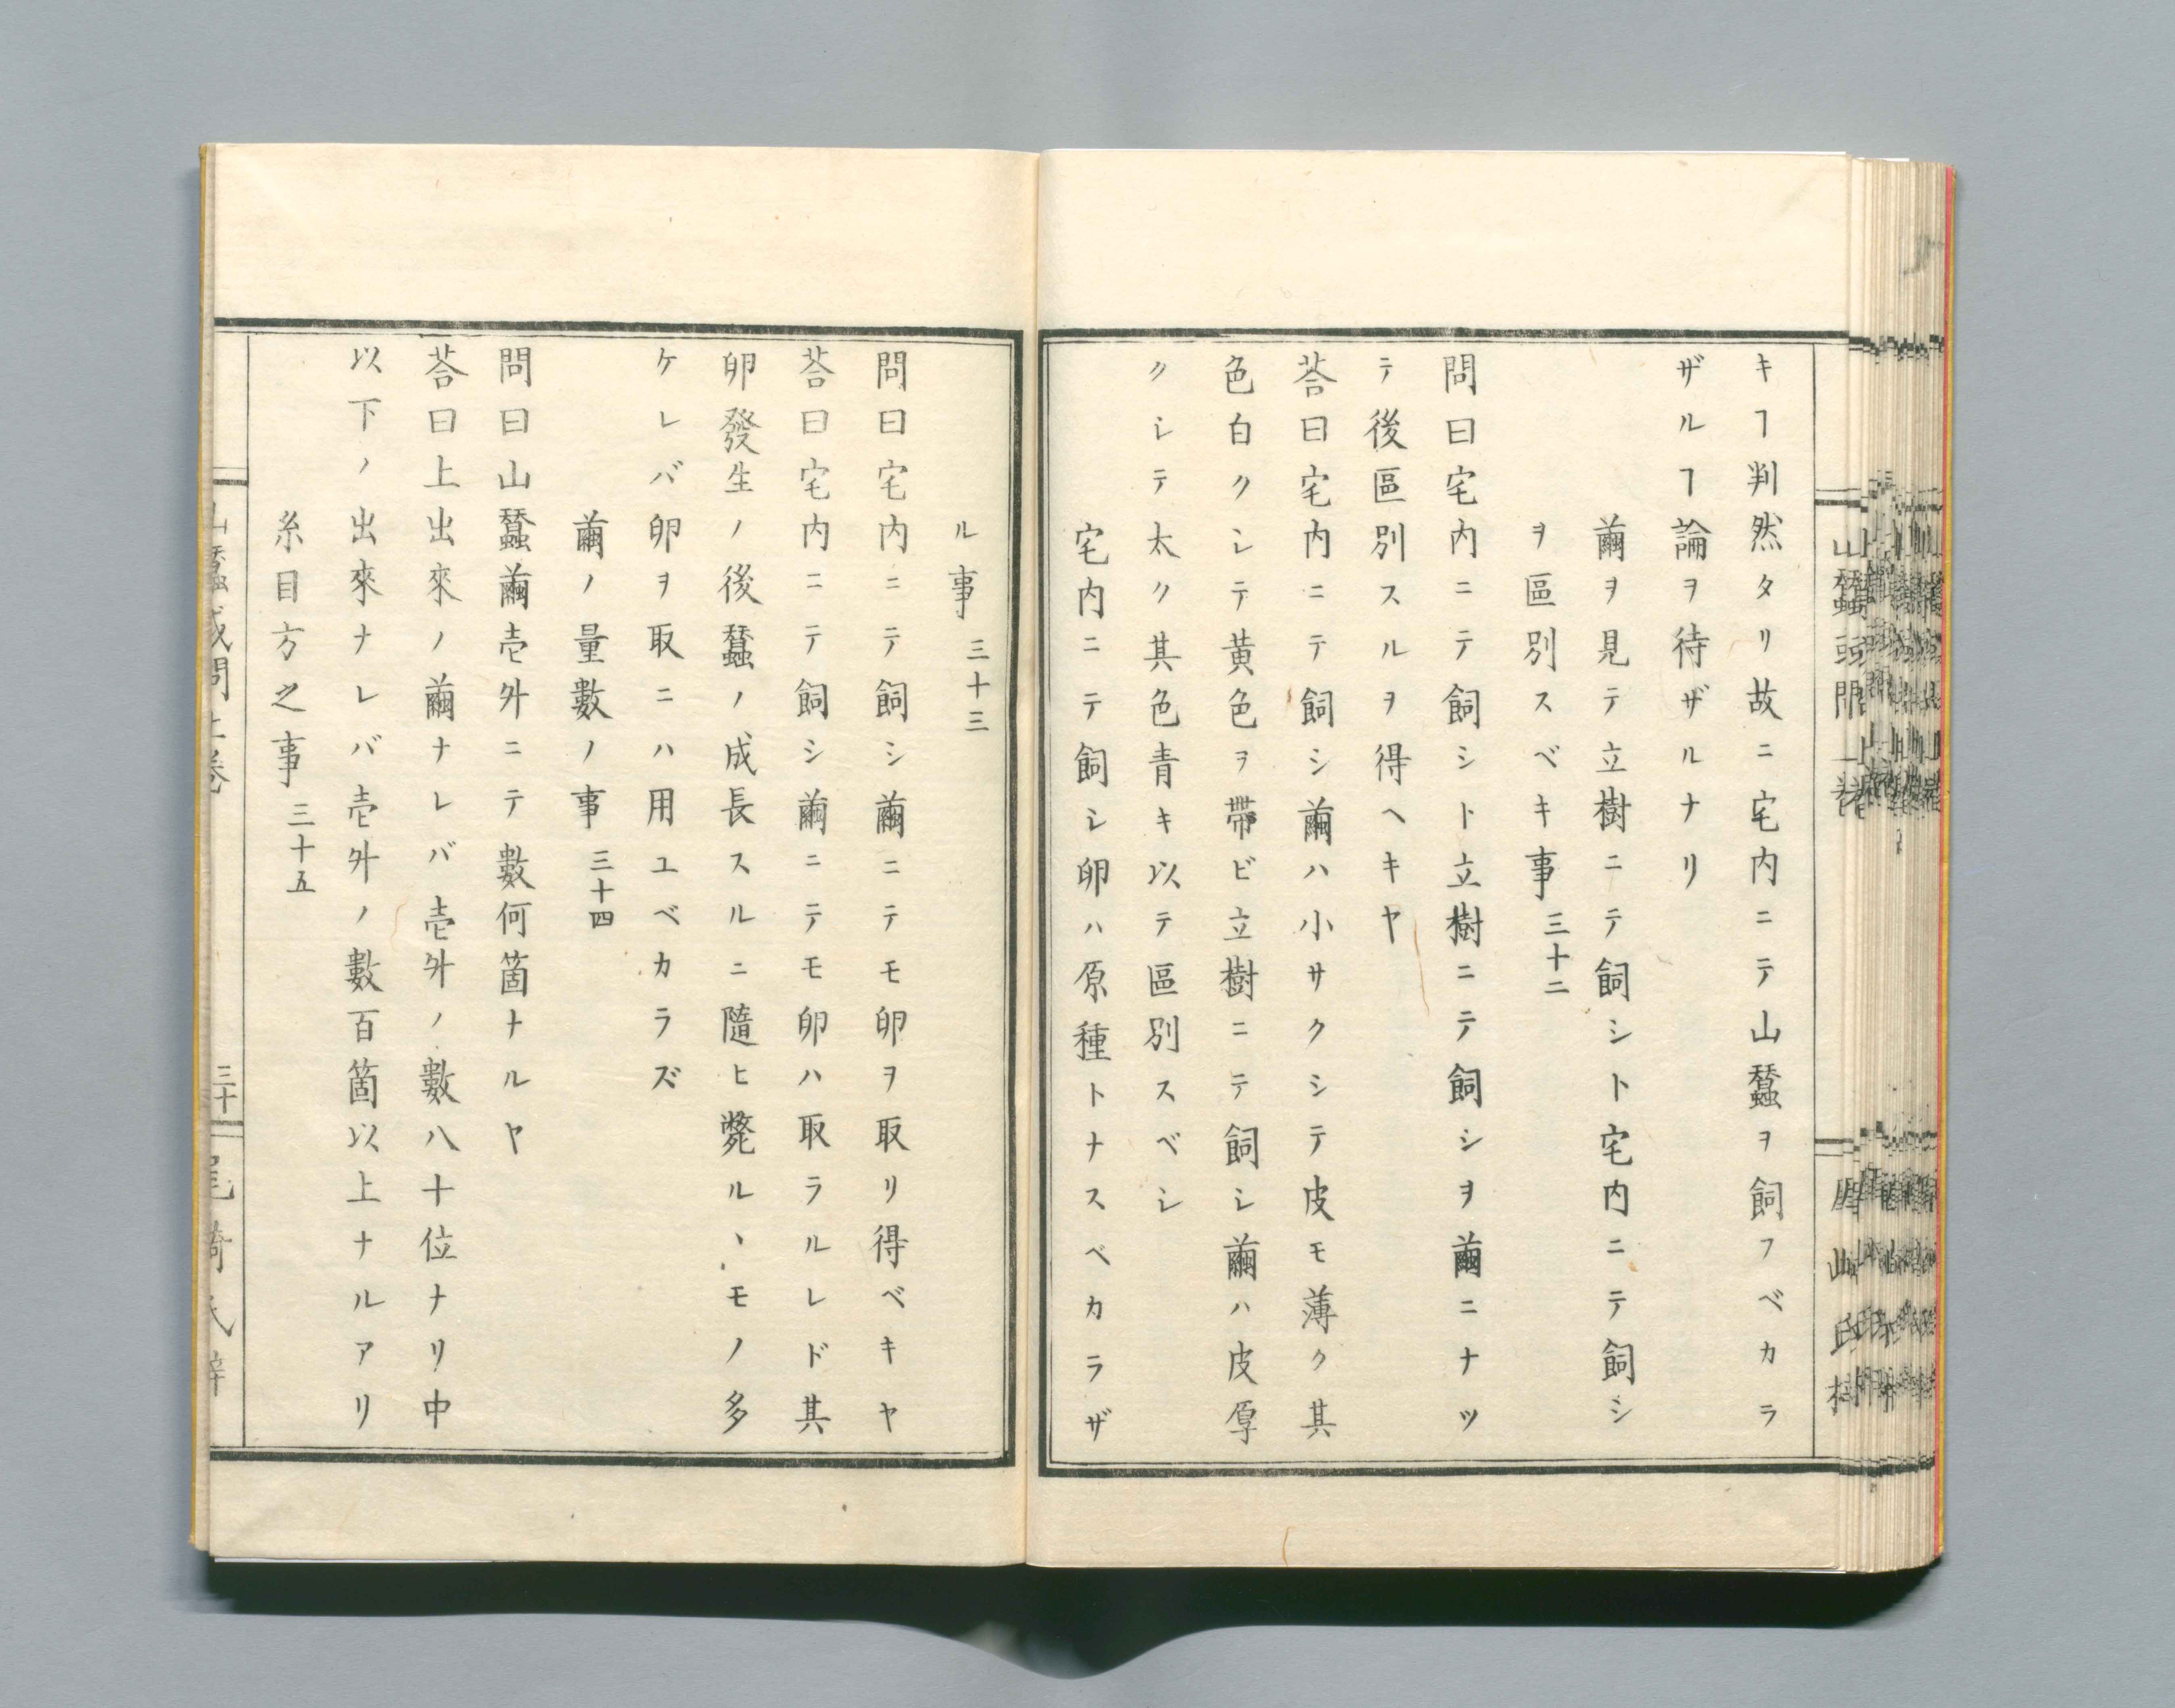 キヿ判然タリ故ニ宅内ニテ山蠶ヲ飼フベカラ
ザルヿ論ヲ待ザルナリ
繭ヲ見テ立樹ニテ飼シト宅内ニテ飼シ
ヲ區別スベキ事 三十二
問曰宅内ニテ飼シト立樹ニテ飼シヲ繭ニナツ
テ後區別スルヲ得ヘキヤ
荅曰宅内ニテ飼シ繭ハ小サクシテ皮モ薄ク其
色白クシテ黄色ヲ帶ビ立樹ニテ飼シ繭ハ皮厚
クシテ太ク其色青キ以テ區別スベシ
宅内ニテ飼シ卵ハ原種トナスベカラザ
ル事 三十三
問曰宅内ニテ飼シ繭ニテモ卵ヲ取リ得ベキヤ
荅曰宅内ニテ飼シ繭ニテモ卵ハ取ラルレド其
卵發生ノ後蠶ノ成長スルニ隨ヒ斃ルヽモノ多
ケレバ卵ヲ取ニハ用ユベカラズ
繭ノ量數ノ事 三十四
問曰山蠶繭壱升ニテ數何箇ナルヤ
荅曰上出來ノ繭ナレバ壱升ノ數八十位ナリ中
以下ノ出來ナレバ壱升ノ數百箇以上ナルアリ
糸目方之事 三十五
三十